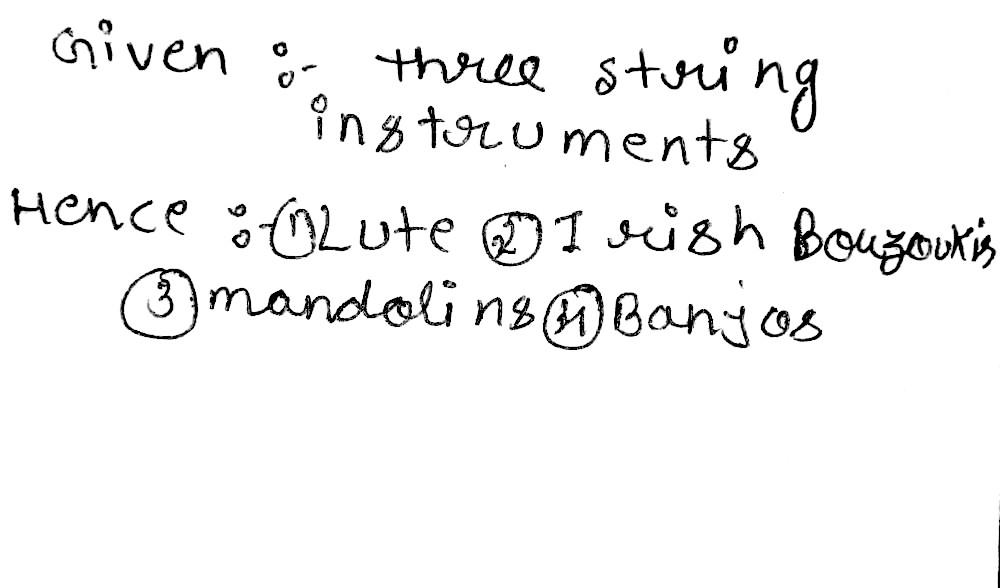 Given :- three string
instruments
Hence :- ① Lute ② Irish Bouzoukis
③ mandolins ④ Banjos